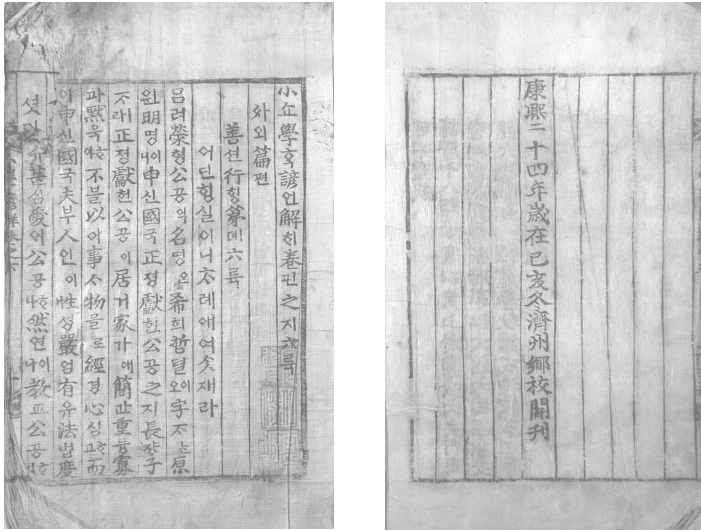 小쇼學혹諺언解ᄒᆡ卷권之지六륙
外외篇편
善션行ᄒᆡᆼ第뎨六륙
어딘ᄒᆡᆼ실이니ᄎᆞ례애여ᄉᆞᆺ재라
呂려榮형公공의名명은希희哲텰이오字ᄌᆞᄂᆞᆫ原
원明명이니申신國국正졍獻헌公공之지長쟝子
ᄌᆞㅣ래正졍獻헌公공이居거家가애簡간重듕寡
과黙묵ᄒᆞ야不블以이事ᄉᆞ物믈로經경心심ᄒᆞ고而
이申신國국夫부人인이性셩嚴엄有유法법度
甚심愛ᄋᆡ公공ᄒᆞ나然연이나敎교公공
康熙二十四年歲在己亥冬濟州鄉校開刊